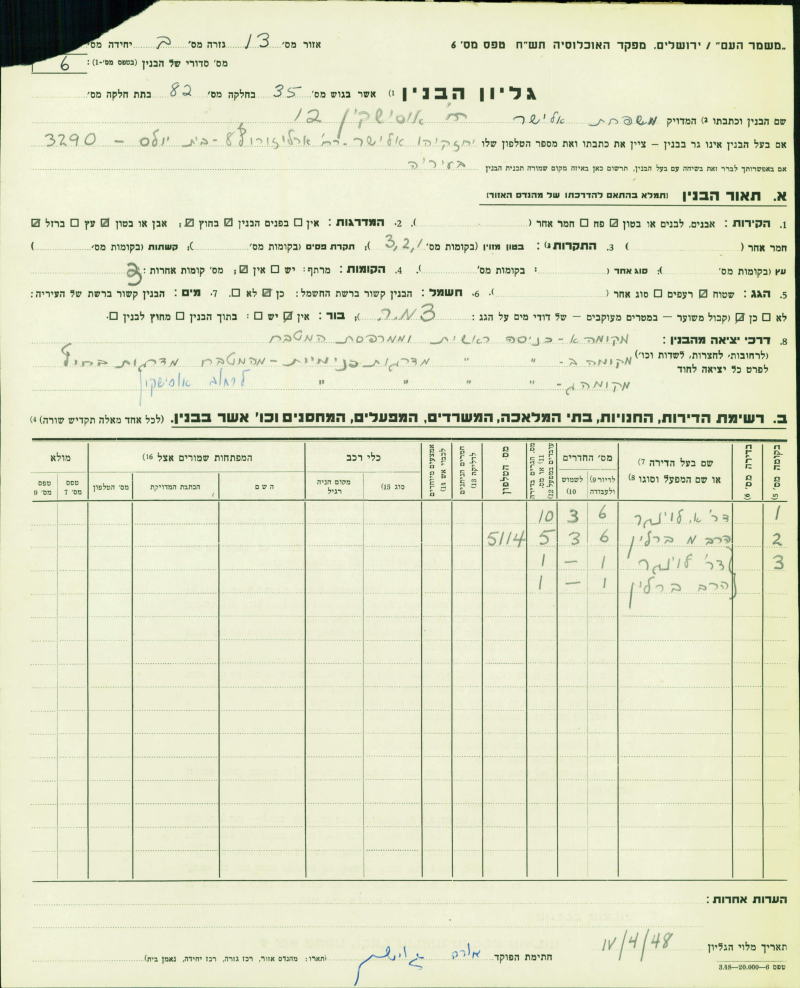 „משמר העם" / ירושלים. מפקד האוכלוסיה תש"ח טפס מס' 6 אזור מס' 13 גזרה מס' ב יחידה מס'
מס' סדורי של הבנין (בטפס מס' 1–): 6
גליון הבנין 1) אשר בגוש מס' 35 בחלקה מס' 82 בתת חלקה מס'
שם הבנין וכתבתו 2) המדויק משפחת אלישר רח' אוסישקין 12
אם בעל הבנין אינו גר בבנין – ציין את כתבתו ואת מספר הטלפון שלו יחזקיהו אלישר – רח' ארלוזורוב – בית יולס – 3290
אם באפשרותך לברר זאת בשיחה עם בעל הבנין, תרשום כאן באיזה מקום שמורה תכנית הבנין בעיריה
א. תאור הבנין (תמלא בהתאם להדרכתו של מהנדס האזור)
1. הקירות: אבנים, לבנים או בטון ☑ פח ☐ חמר אחר ( ). 2. המדרגות: אין ☐ בפנים הבנין ☑ בחוץ ☑; אבן או בטון ☑ עץ ☐ ברזל ☑
חמר אחר ( ) 3. התקרות: בטון מזוין (בקומות מס' 3,2,1); תקרת פסים (בקומות מס' ); קשתות (בקומות מס' )
עץ (בקומות מס' ); סוג אחד ( : בקומות מס' ). 4. הקומות: מרתף: יש ☐ אין ☑; מס' קומות אחרות: 3
5. הגג: שטוח ☑ רעפים ☐ סוג אחר ( ). 6. חשמל: הבנין קשור ברשת החשמל: כן ☑ לא ☐. 7. מים: הבנין קשור ברשת של העיריה:
לא ☐ כן ☑ (קבול משוער – במטרים מעוקבים – של דודי מים על הגג: 3 מ.ר.); בור: אין ☑ יש ☐: בתוך הבנין ☐ מחוץ לבנין ☐.
8. דרכי יציאה מהבנין: מקומה א – כניסה ראשית וממרפסת המטבח
(לרחובות, לחצרות, לשדות וכו') מקומה ב – " " מדרגות פנימיות – מהמטבח מדרגות בחוץ
לפרט כל יציאה לחוד מקומה ג – " " " " לרחוב אוסישקין
ב. רשימת הדירות, החנויות, בתי המלאכה, המשרדים, המפעלים, המחסנים וכו' אשר בבנין. (לכל אחד מאלה תקדיש שורה) 4)
בקומה מס' 5) בדירה מס' 6) שם בעל הדירה 7) או שם המפעל וסוגו 8) מס' החדרים לדיור 9) ולעבודה לשמוש 10) מס' הטלפון כלי רכב סוג 15) מקום חניה רגיל המפתחות שמורים אצל 16) השם הכתבת המדויקת מס' הטלפון מולא טפס מס' 7 טפס מס' 9
1 דר' א. לוינגר 6 3 10
2 הרב מ ברלין 6 3 5 5114
3 דר' לוינגר 1 – 1
הרב ברלין 1 – 1
הערות אחרות:
תאריך מלוי הגליון 17/4/48 חתימת הפוקד (תארו: מהנדס אזור, רכז גזרה, רכז יחידה, נאמן בית)
טפס 6–20.000–3.48